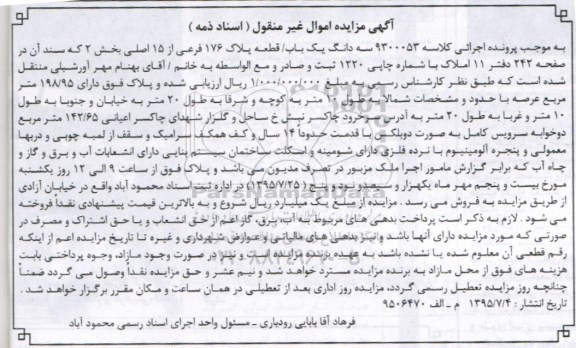 آگهی مزایده اموال غیر منقول ( اسناد ذمه )
به موجب پرونده اجرائی کلاسه ۹۳۰۰۰۵۳ سه دانگ یک باب/قطعه پلاک ۱۷۶ فرعی از ۱۵ اصلی بخش ۲ که سند آن در
صفحه ۲۴۲ دفتر ۱۱ املاک با شماره چاپی ۱۲۲۰ ثبت و صادر و مع الواسطه به خانم / آقای بهنام مهر آورشیلی منتقل
شده است که طبق نظر کارشناس رسمی به مبلغ ۱/۰۰۰/۰۰۰/۰۰۰ ریال ارزیابی شده و پلاک فوق دارای ۱۹۸/۹۵
متربع عرصه با حدود و مشخصات شمالا به طول ۱۰ متر به کوچه و شرقا به طول ۲۰ متر به خیابان و جنوبا به طول
۱۰ متر و غربا به طول ۲۰ متر به آدرس سرخرود چاکسر نبش خ ساحل و گلزار شهدای چاکسر اعیانی ۱۴۲/۶۵ متر مربع
دوخوابه سرویس کامل به صورت دوبلکس با قدمت حدوداً ۱۴ سال و کف همکف سرامیک و سقف از لمبه چوبی و دربها
معمولی و پنجره آلومینیوم با نرده فلزی دارای شومینه و اسکلت ساختمان سیستم بنایی دارای انشعابات آب و برق و گاز و
چاه آب که برابر گزارش مامور اجرا ملک مزبور در تصرف مدیون می باشد و پلاک فوق از ساعت ۹ الی ۱۲ روز یکشنبه
مورخ بیست و پنجم مهر ماه یکهزار و سیصدونود و پنج (۱۳۹۵/۷/۲۵) در اداره ثبت اسناد محمود آباد واقع در خیابان آزادی
از طریق مزایده به فروش می رسد . مزایده از مبلغ یک میلیارد ریال شروع و به بالاترین قیمت پیشنهادی نقداً فروخته
می شود . لازم به ذکر است پرداخت بدهی های مربوط به آب، برق، گاز اعم از حق انشعاب و یا حق اشتراک و مصرف در
صورتی که مورد مزایده دارای آنها باشد و نیز بدهی های مالیاتی و عوارض شهرداری و غیره تا تاریخ مزایده اعم از اینکه
رقم قطعی آن معلوم شده یا نشده باشد به عهده برنده مزایده است و نیز در صورت وجود مازاد، وجوه پرداختی بابت
هزینه های فوق از محل مازاد به برنده مزایده مسترد خواهد شد و نیم عشر و حق مزایده نقداً وصول می گردد ضمناً
چنانچه روز مزایده تعطیل رسمی گردد، مزایده روز اداری بعد از تعطیلی در همان ساعت و مکان مقرر برگزار خواهد شد .
تاریخ انتشار : ۱۳۹۵/۷/۴ م - الف ۹۵۰۶۴۷۰
فرهاد آقا بابایی رودباری - مسئول واحد اجرای اسناد رسمی محمود آباد